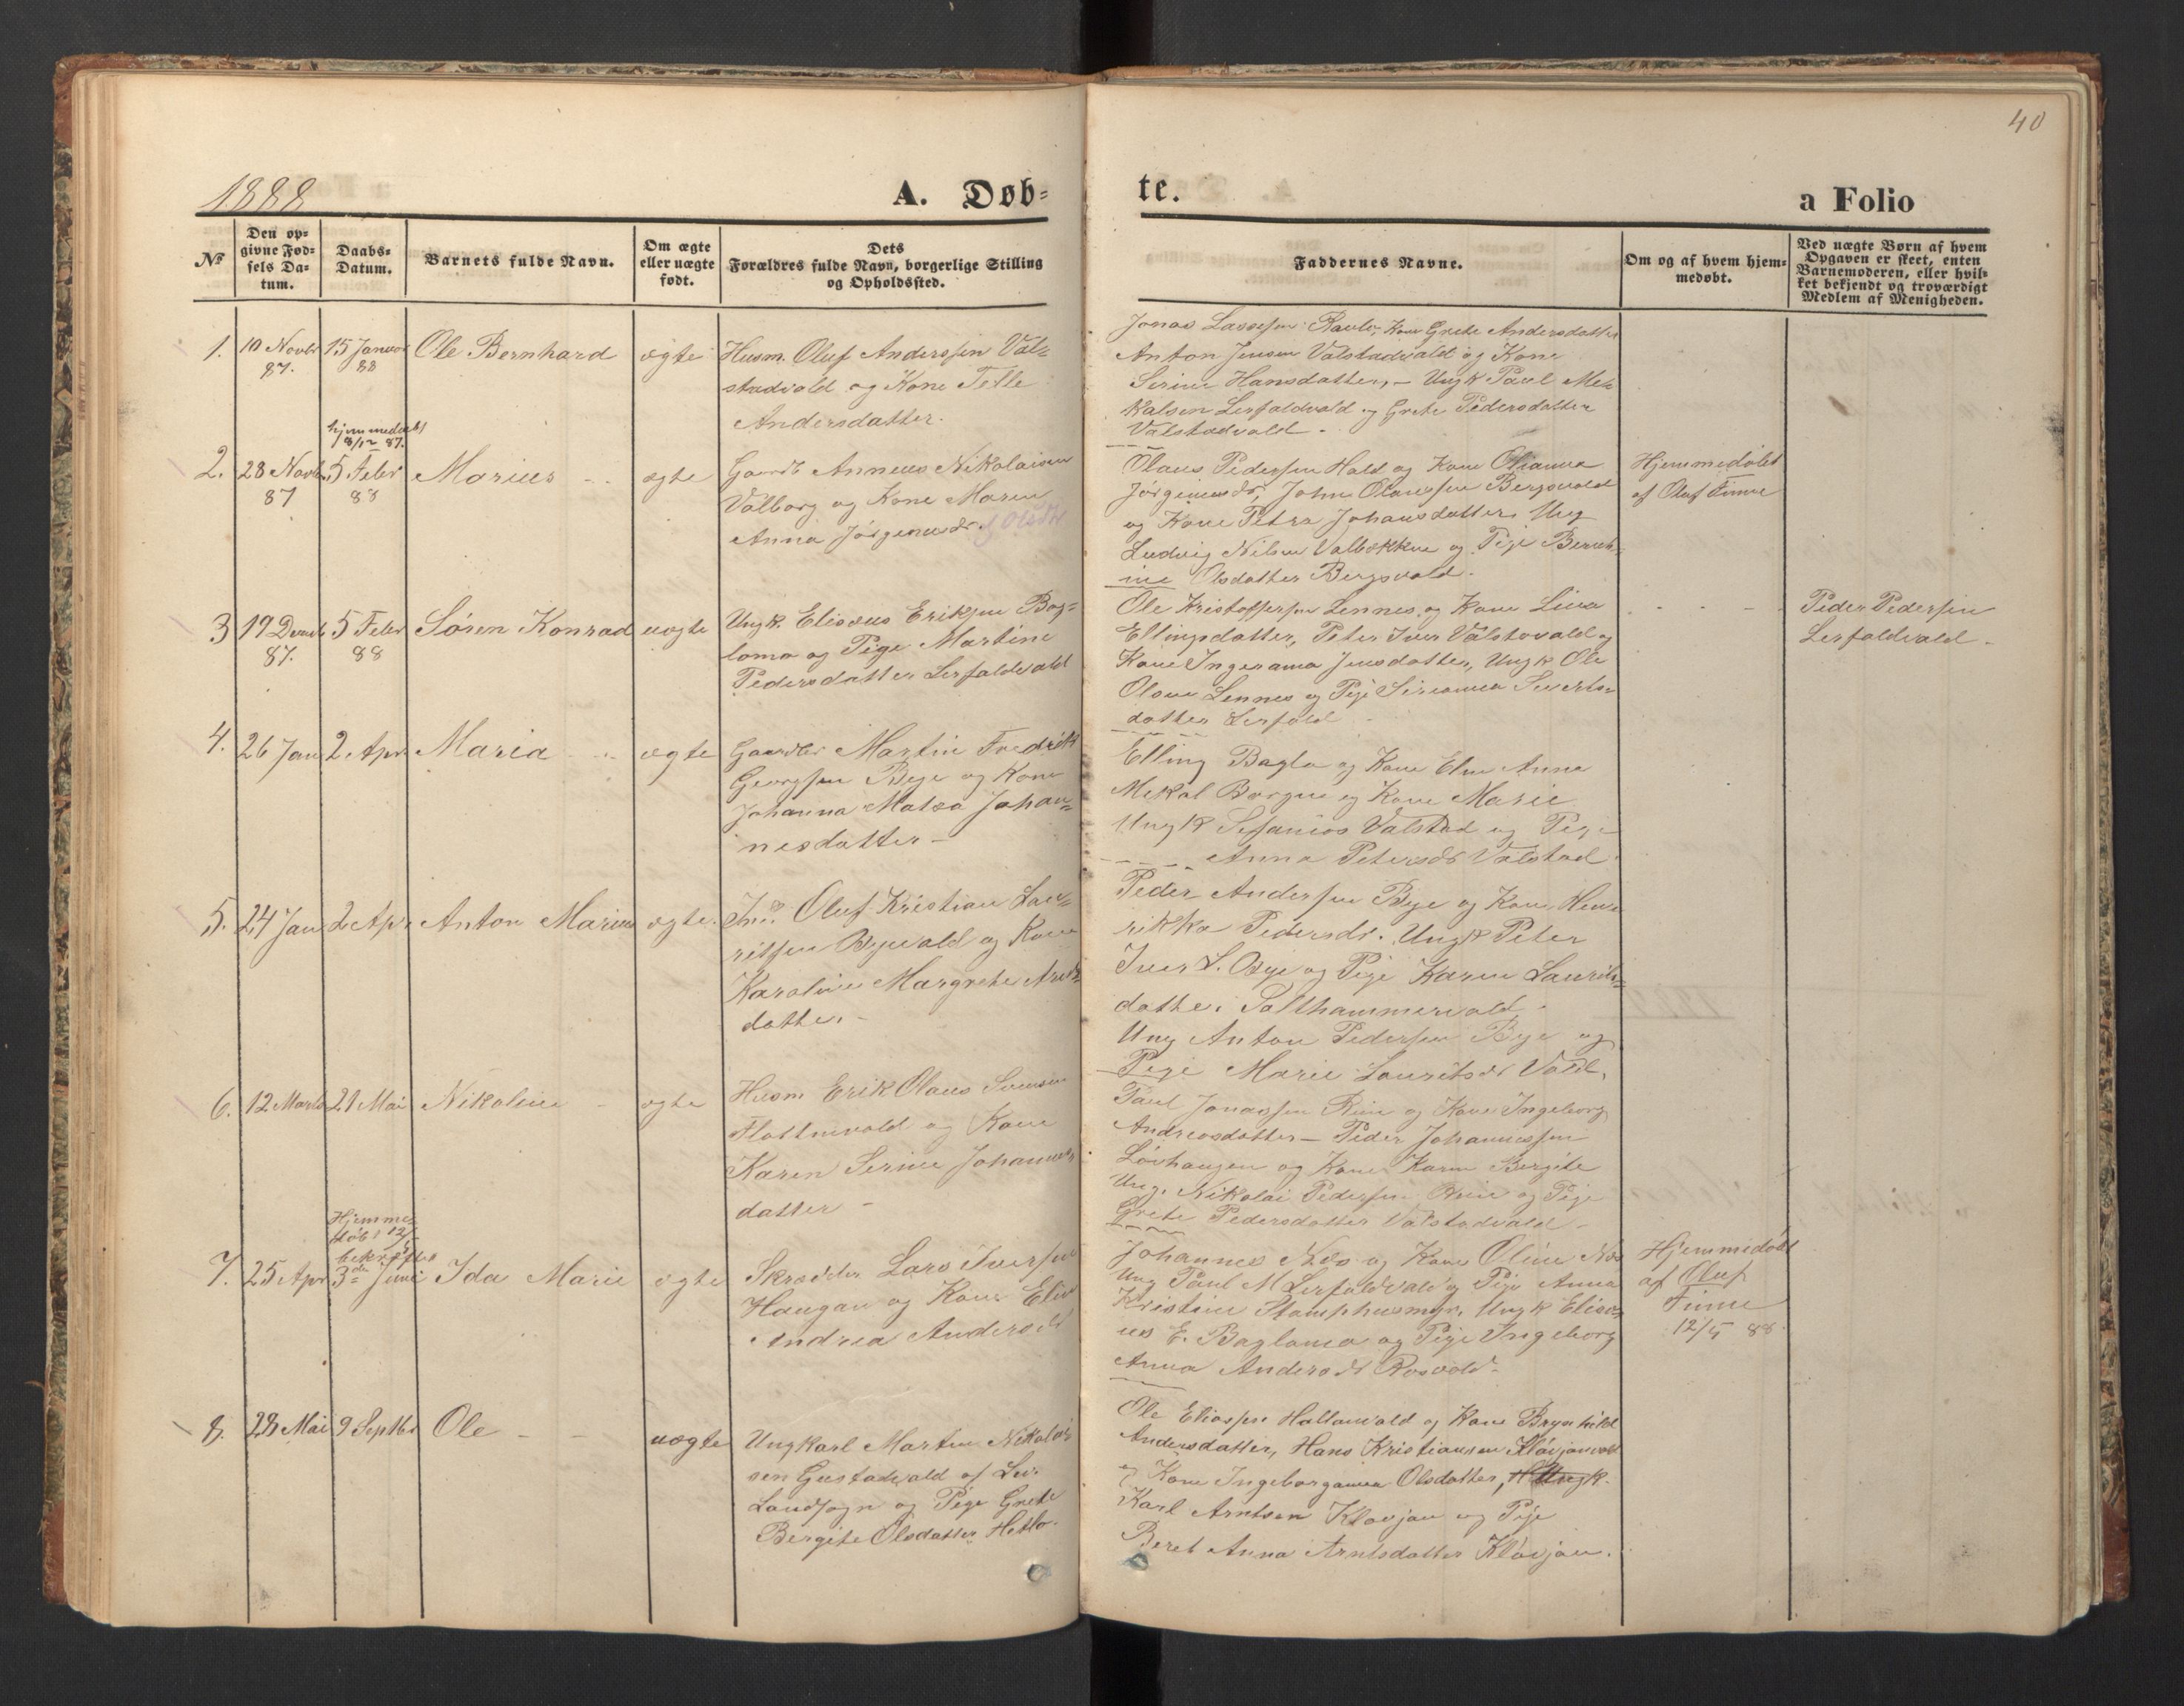 40
1888
A. Døb=
te.
a Folio
№
Den op=
givne Fød=
sels Da=
tum.
Daabs=
Datum.
Barnets fulde Navn.
Om ægte
eller uægte
født.
Dets
Forældres fulde Navn, borgerlige Stilling
og Opholdssted.
Faddernes Navne.
Om og af hvem hjem=
medøbt.
Ved uægte Børn af hvem
Opgaven er skeet, enten
Barnemoderen, eller hvil=
ket bekjendt og troværdigt
Medlem af Menigheden.
1.
10 Novbr
87.
15 Januar
88
Ole Bernhard
ægte
Husm. Oluf Anderssen Val=
stadvald og Kone
Andersdatter.
Jonas Lassesen Kone Grete Andersdatter
Anton Jensen Valstadvald og Kone
Serine Hansdatter, – Ungk Paul Me=
kalsen Lerfaldvald og Grete Pedersdatter
Valstadvald.
2.
28 Novbr
87
hjemmedøbt
8/12 87.
5 Febr
88
Marius
ægte
Gaardb Anneus Nikolaisen
Valborg og Kone Maren
Anna Jørgensdr. Olsdtr
Olaus Pedersen Hald og Kone Olianna
Jørgensdr, John Olaussen Bergsvald
og Kone Petra Johansdatter Ung
Ludvig Nilsen Valbækken og Pige Bernh=
ine Olsdatter Bergsvald.
Hjemmedøbt
af Oluf Finne
3
19 Decmb
87.
5 Febr
88
Søren Konrad
uægte
Ungk. Elisæus Eriksen Bag=
lama og Pige Martine
Pedersdatter Lerfaldvald
Ole Kristoffersen Lennes og Kone Lina
Ellingsdatter, Peter Iver Valstovald og
Kone Ingerama Jensdatter, Ungk Ole
Olsen Lennes og Pige Serianna SivertS=
datter Lerfald
Peder Pedersen
Lerfaldvald
4.
26 Jan
2 Apr
Maria
ægte
Gaardbr Martin Fredrik
Georgsen Bye og Kone
Johanna Malea Johan=
nesdatter –
Elling Bagla og Kone Elen Anna
Mekal Borgen og Kone Marie
Ungk Sefanias Valstad og Pige
Anna Petersdr Valstad
5.
24 Jan
2 Apr
Anton Marius
ægte.
Oluf Kristian Lau=
ritsen Byevald og Kone
Karoline Margrete Arnts=
datter. –
Peder Andersen Bye og Kone Hen=
rikka Pedersdr. Ungk Peter
Iver L. Bye og Pige Karen Laurits=
datter Salthammervald.
Ung Anton Pedersen Bye og
Pige Marie Lauritsdr Vald.
6.
12 Marts
21 Mai
Nikoline
ægte
Husm Erik Olaus Svensen
Flottenvald og Kone
Karen Serine Johannes=
datter –
Paul Jonassen Rine og Kone Ingeborg
Andreasdatter – Peder Johannessen
Løvhaugen og Kone Karen Bergite
Ung. Nikolai Pedersen Rine og Pige
Grete Pedersdatter Valstadvald –
7.
25 Apr
Hjemme=
døbt 12/5
bekræftet
3de Juni
Ida Marie
ægte
Skrædder Lars Iversen
Haugan og Kone Elen
Andrea Andersdr
Johannes Næs og Kone Oline Næs
Ung Paul M Lerfaldvald og Pige Anna
Kristine Stamphusmyr, Ungk Elisæ=
us E. Baglama og Pige Ingeborg
Anna Andersdr Rosvold.
Hjemmedøbt
af Oluf
Finne
12/5 88.
8.
28 Mai
9 Septbr
Ole
uægte
Ungkarl Martin Nikolai=
sen Gustadvald af Lev.
Landsogn og Pige Grete
Bergite Olsdatter Hetlo.
Ole Eliassen Hallanvald og Kone Brynhild
Andersdatter, Hans Kristiansen Kløvjanvald
og Kone Ingeborganna Olsdatter, Ungk.
Karl Arntsen Kløvjan og Pige
Beret Anna Arntsdatter Kløvjan.